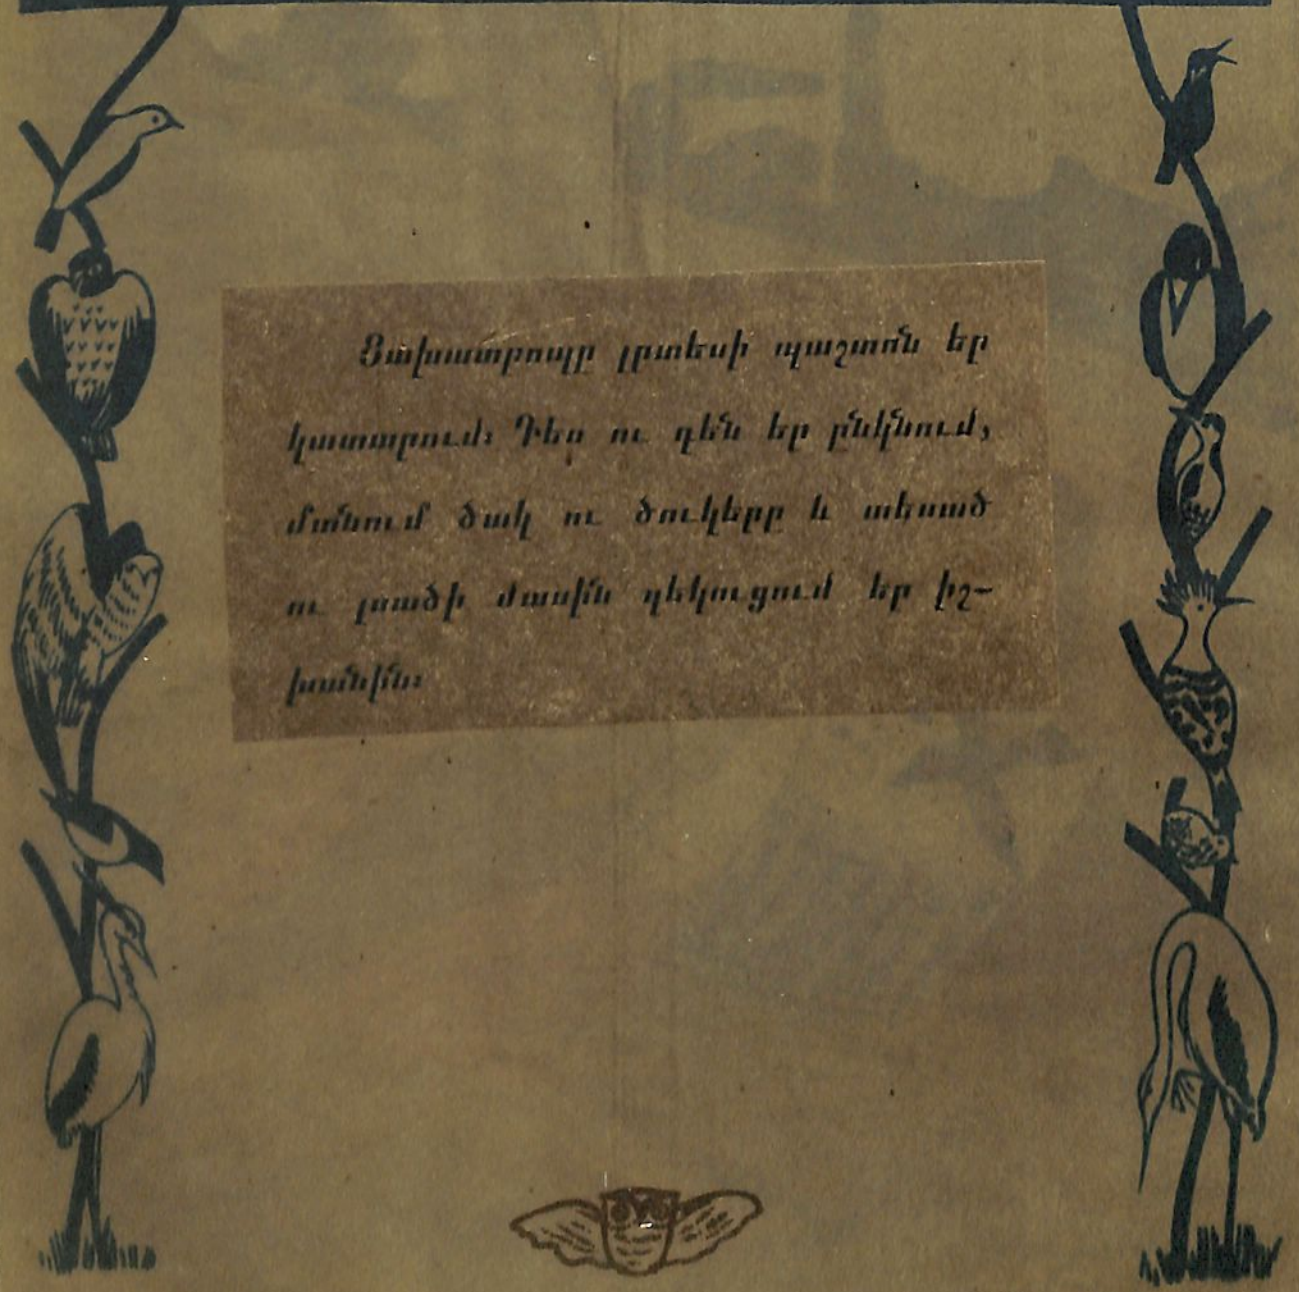 Ցախսարեակը լրտեսի պաշտոն եր
կատարում։ Դես ու դեն եր ընկնում,
մտնում ծակ ու ծուկերը և տեսած
ու լսածի մասին զեկուցում եր իշ-
խանին։